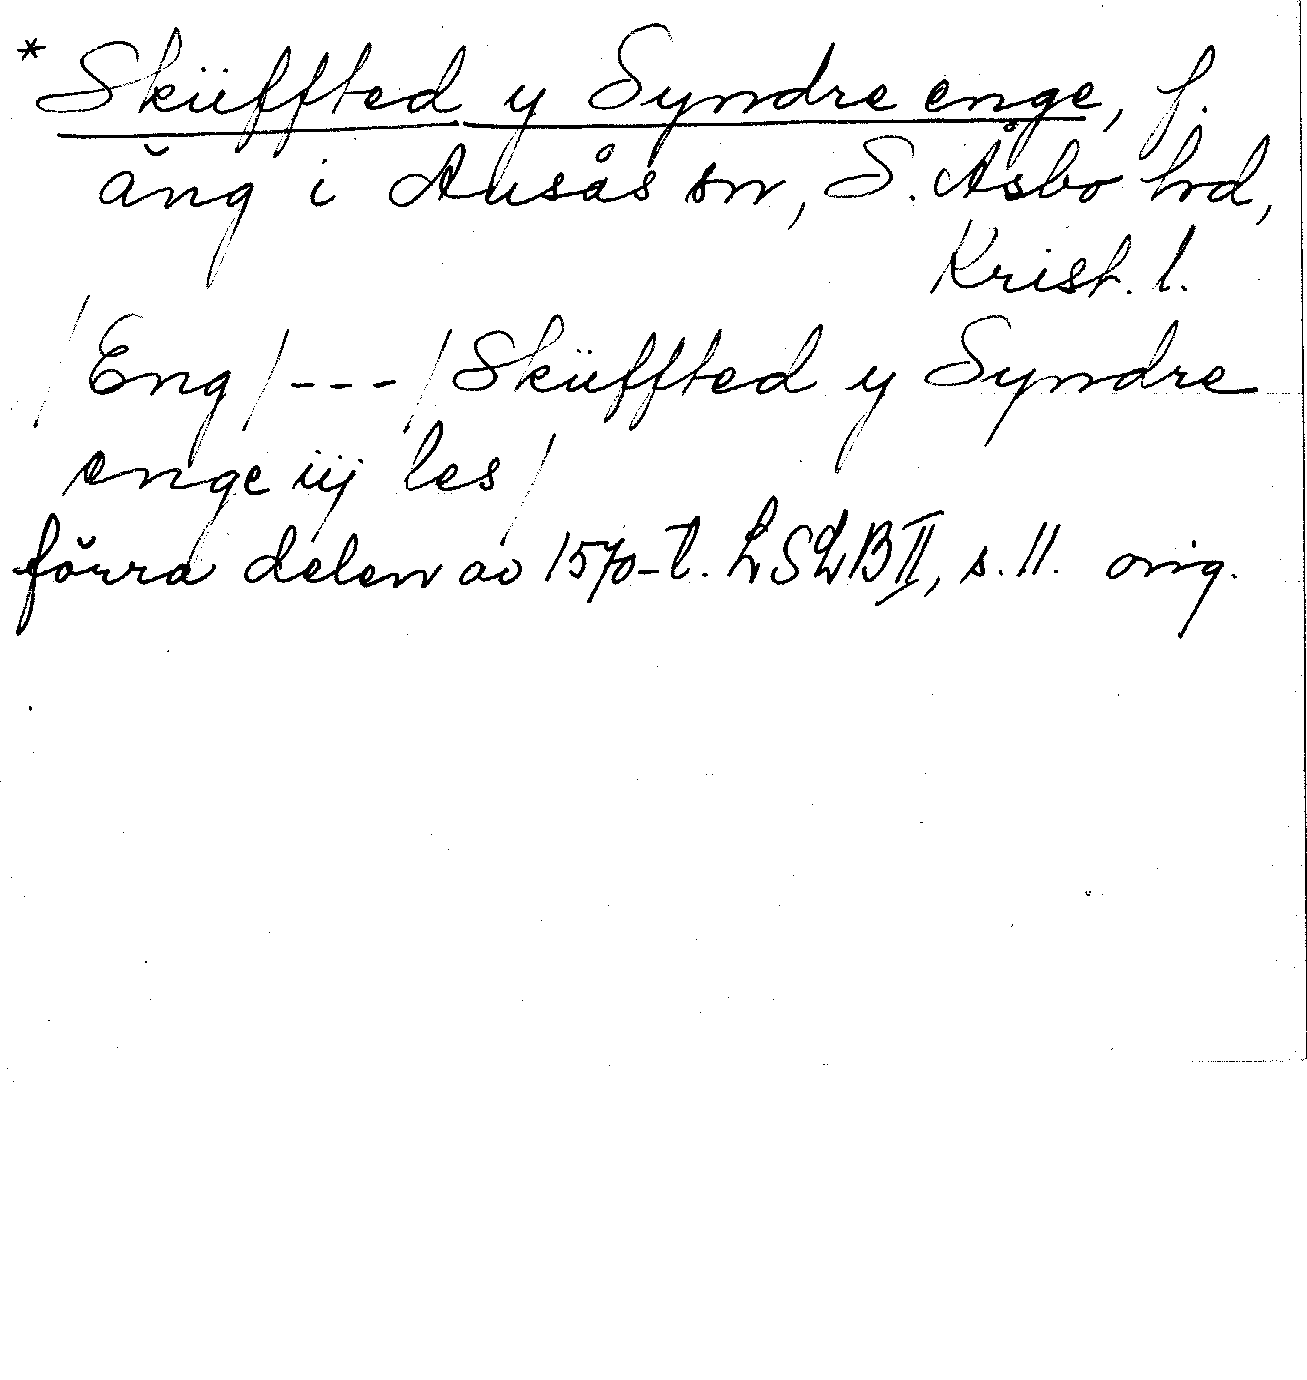 * Sküffted y Syndre enge, f.
äng i Ausås sn, S. Åsbo hd,
Krist. l.
/Eng/---/Sküffted y Syndre
enge iij les/
förra delen av 1570-t. LSLB II, s. 11. orig.